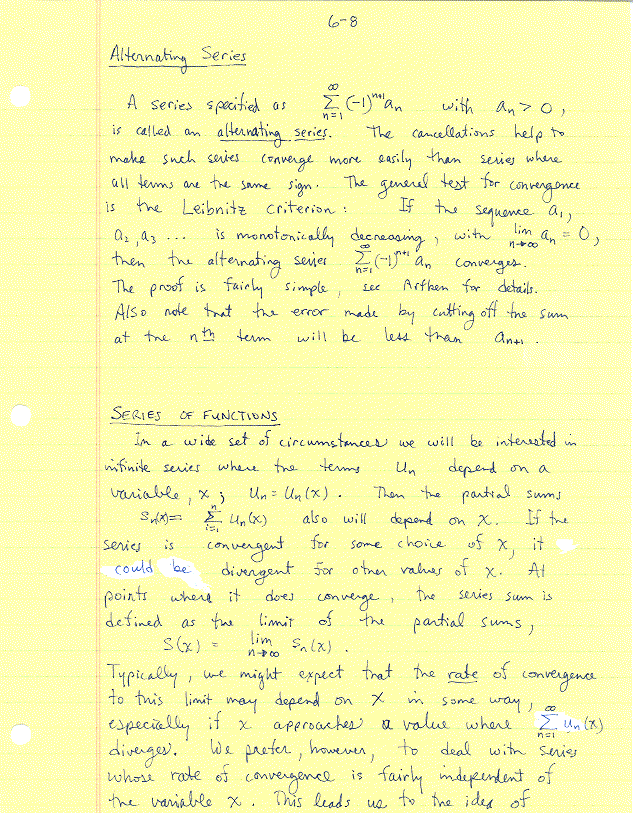 6-8
Alternating Series
A series specified as ∑_{n=1}^{∞} (-1)^{n+1} a_n with a_n > 0,
is called an alternating series. The cancellations help to
make such series converge more easily than series where
all terms are the same sign. The general test for convergence
is the Leibnitz criterion: If the sequence a_1,
a_2, a_3 ... is monotonically decreasing, with lim_{n→∞} a_n = 0,
then the alternating series ∑_{n=1}^{∞} (-1)^{n+1} a_n converges.
The proof is fairly simple, see Arfken for details.
Also note that the error made by cutting off the sum
at the nth term will be less than a_{n+1}.
SERIES OF FUNCTIONS
In a wide set of circumstances we will be interested in
infinite series where the terms U_n depend on a
variable, x; U_n = U_n(x). Then the partial sums
S_n(x) = ∑_{i=1}^{n} U_n(x) also will depend on x. If the
series is convergent for some choice of x, it
could be divergent for other values of x. At
points where it does converge, the series sum is
defined as the limit of the partial sums,
S(x) = lim_{n→∞} S_n(x).
Typically, we might expect that the rate of convergence
to this limit may depend on x in some way,
especially if x approaches a value where ∑_{n=1}^{∞} U_n(x)
diverges. We prefer, however, to deal with series
whose rate of convergence is fairly independent of
the variable x. This leads us to the idea of